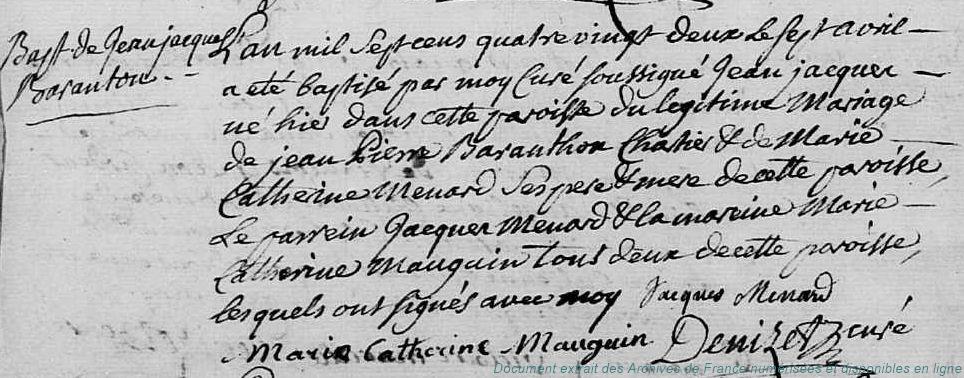 Bapt. de Jean jacques
Baranton
L'an mil Sept cens quatre vingt deux le sept avril
a été baptisé par moy Curé soussigné Jean jacques
né hier dans cette paroisse du legitime Mariage
de jean Pierre Baranthon Chatier & de Marie
Catherine Menard ses pere & mere de cette paroisse,
Le parrein Jacques Menard & la mareine Marie
Catherine Mauguin tous deux de cette paroisse,
lesquels ont signés avec moy Jacques Menard
Marie Catherine Mauguin Denizet curé
Document extrait des Archives de France numérisées et disponibles en ligne